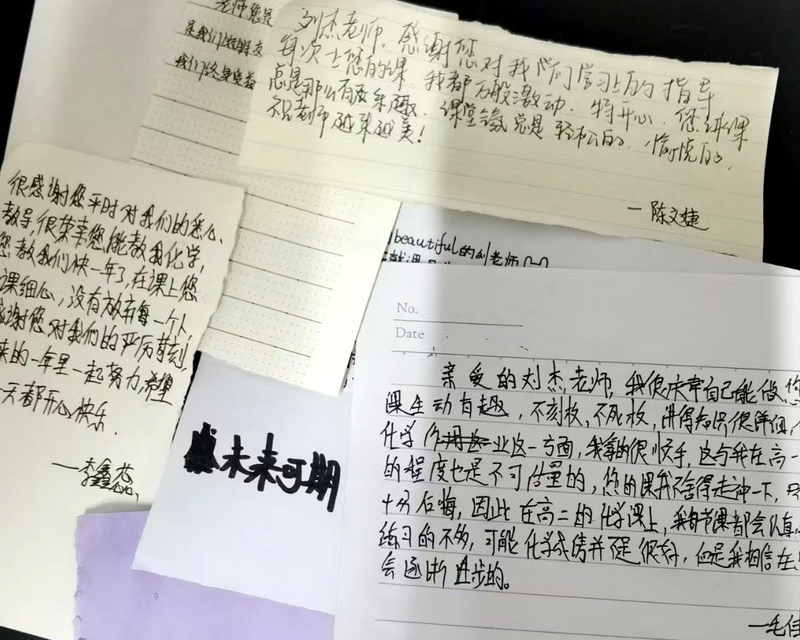 老师您是
是我们
我们
刘杰老师，感谢您对我们学习上的指导
每次上您的课，我都万般激动，特开心，您讲课
总是那么有趣，课堂氛围总是轻松的、愉悦的
祝老师越来越美！
—陈文婕
很感谢您平时对我们的悉心
教导，很荣幸您能教我化学，
您教我们快一年了，在课上您
课细心，没有放弃每一个人
感谢您对我们的严厉
来的一年里一起努力，希望
天都开心快乐．
—李鑫蕊
beautiful的刘老师
未来可期
No.
Date
亲爱的刘杰老师，我很庆幸自己能做您
课生动有趣，不刻板，不死板，讲得知识很详细，
化学作业这一方面，我写的很顺手，这与我在高一
的程度也是不可估量的，您的课我不舍得走神一下，
十分后悔，因此在高二的化学课上，我每节课都会认真
练习的不多，可能化学成绩并不是很好，但是我相信在
会逐渐进步的。
—毛佳